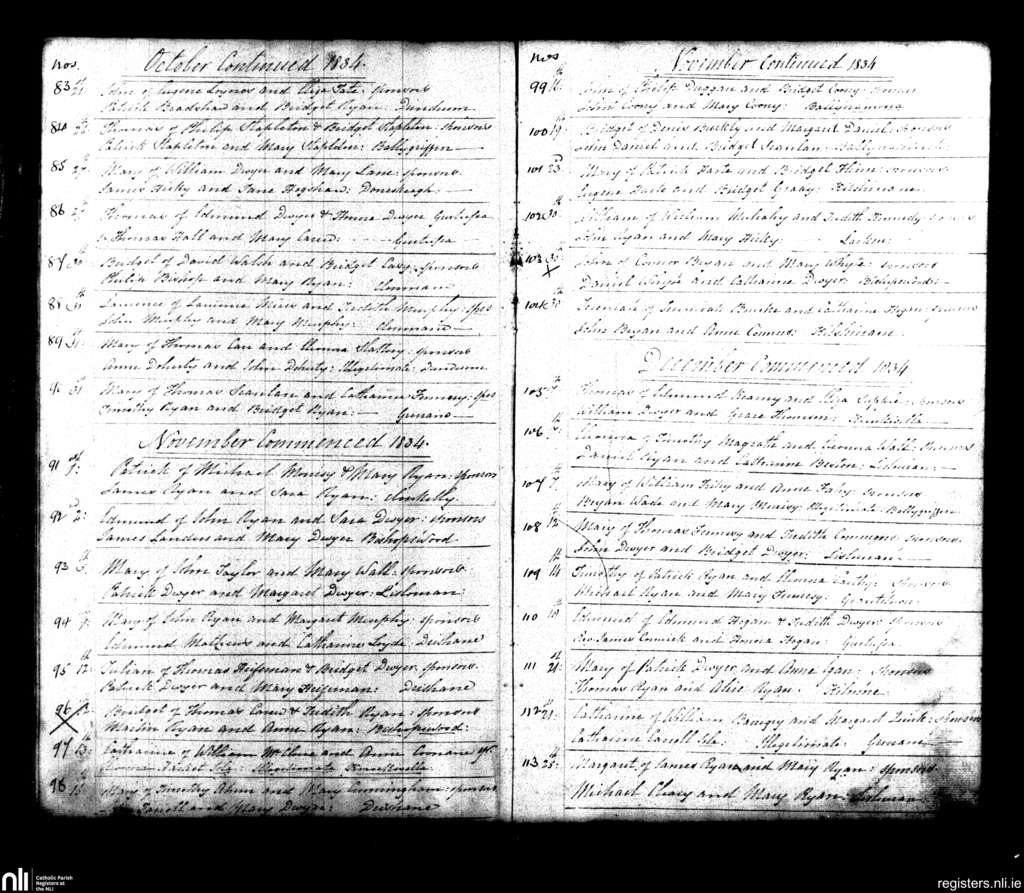 Nos. October Continued 1834.
83 John of Eugene and Eliza Tate: sponsors
Patrick Bradshaw and Bridget Ryan: Dundrum
84 Thomas of Philip Stapleton & Bridget Stapleton: sponsors
Patrick Stapleton and Mary Stapleton: Ballygriffin
85 27 Mary of William Dwyer and Mary Lane: sponsors
James Hicky and Jane Hogshaw: Donaskeagh:
86 Thomas of Edmund Dwyer & Honora Dwyer Gurtussa
Thomas Hall and Mary Carew: Gurtussa
87 30 Bridget of David Walsh and Bridget Casey: sponsors
Philip Bishop and Mary Ryan: Clonmane
88 Laurence of Laurence and Judith Murphy: spos
John Murphy and Mary Murphy: Clonmane
89 31 Mary of Thomas Carr and Honora Slattery: sponsors
Anne Doherty and John Doherty: Illegitimate: Dundrum
90 31 Mary of Thomas Scanlan and Catharine Finnery: spos
Timothy Ryan and Bridget Ryan: Gurnane
November Commenced 1834.
91 Patrick of Michael and Mary Ryan: sponsors
James Ryan and Sara Ryan: Clonkelly
92 2: Edmund of John Ryan and Sara Dwyer: sponsors
James Landers and Mary Dwyer Bishopswood
93 5: Mary of John Taylor and Mary Wall: sponsors
Patrick Dwyer and Margaret Dwyer: Lishman:
94 9: Mary of John Ryan and Margaret Murphy: sponsors
Edmund Mathews and Catharine Loyde: Deshane
95 12: Julian of Thomas Heffernan & Bridget Dwyer: sponsors.
Patrick Dwyer and Mary Heffernan: Deshane
96 Bridget of Thomas Carew & Judith Ryan: sponsors
Martin Ryan and Anne Ryan: Bishopswood:
97 13: Catharine of William McClure and Anne
Illegitimate Knockavilla
98 16 Mary of Timothy Ahern and Mary Cunningham: sponsors
and Mary Dwyer: Deshane
Nos November Continued 1834
99 16: John of Philip Duggan and Bridget Coony: sponsors
John Coony and Mary Coony:
100 19: Bridget of Denis Buckly and Margaret Daniel: sponsors
John Daniel and Bridget Scanlan:
101 23: Mary of Patrick Farte and Bridget Flinn: sponsors
Eugene Farte and Bridget Grady: Kilshenane.
102 30: William of William Mulcahy and Judith Kennedy: sponsors
John Ryan and Mary Hicky: Lacken:
103 30: John of Connor Bryan and Mary Whyte: sponsors
Daniel Whyte and Catharine Dwyer Bishopswood:
104 30: Jeremiah of Jeremiah Burke and Catharine Hogan: sponsors
John Bryan and Anne Kilshenane:
December Commenced 1834
105 Thomas of Edmund Kearny and Eliza: sponsors
William Dwyer and Grace Thomson: Knockavilla
106 Honora of Timothy Magrath and Honora Wall: sponsors
Daniel Ryan and Catharine: Lishman:
107 7 Mary of William Fihy and Anne Fahy: sponsors
Bryan Wade and Mary: Illegitimate: Ballygriffin
108 12 Mary of Thomas Fennessy and Judith Commons sponsors.
John Dwyer and Bridget Dwyer: Lishman:
109 14 Timothy of Patrick Ryan and Honora: sponsors
Michael Ryan and Mary Fennessy:
110 19 Edmund of Edmund Hogan & Judith Dwyer: sponsors
James and Honora Hogan: Gurtussa
111 21: Mary of Patrick Dwyer and Anne Egan: sponsors
Thomas Ryan and Alice Ryan:
112 21: Catharine of William and Margaret Quirk: sponsors
Catharine Carroll Illegitimate: Gurnane
113 25: Margaret of James Ryan and Mary Ryan: sponsors
Michael Cleary and Mary Ryan Lishman
nli
Catholic Parish
Registers at
the NLI
registers.nli.ie